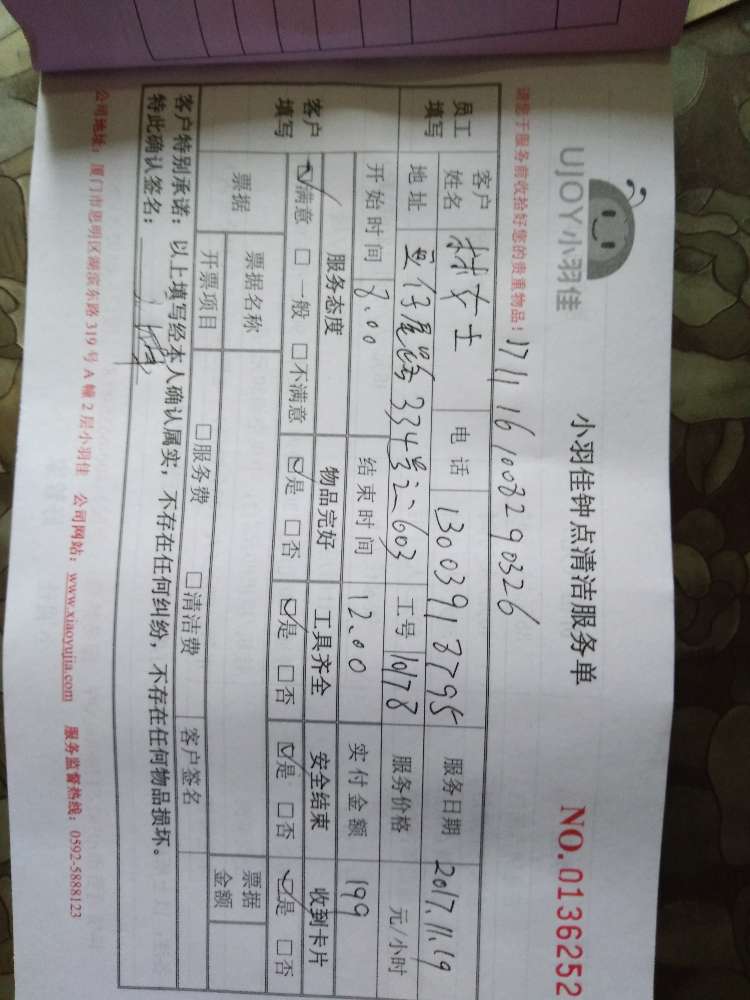 UJOY小羽佳
小羽佳钟点清洁服务单
NO.0136252
请您于服务前收拾好您的贵重物品!
1711161008290326
员工填写 客户姓名 林女士 电话 13003918795 服务日期 2017.11.19
地址 曾厝垵路334号之二603 工号 10178 服务价格 元/小时
开始时间 8.00 结束时间 12.00 实付金额 199
客户填写 服务态度 物品完好 工具齐全 安全结束 收到卡片
☑满意 □一般 □不满意 ☑是 □否 ☑是 □否 ☑是 □否 ☑是 □否
票据 票据名称 票据金额
开票项目 □服务费 □清洁费 客户签名
客户特别承诺:以上填写经本人确认属实,不存在任何纠纷,不存在任何物品损坏。
特此确认签名:
公司地址:厦门市思明区湖滨东路319号A幢2层小羽佳 公司网站:www.xiaoyujia.com 服务监督热线:0592-5888123